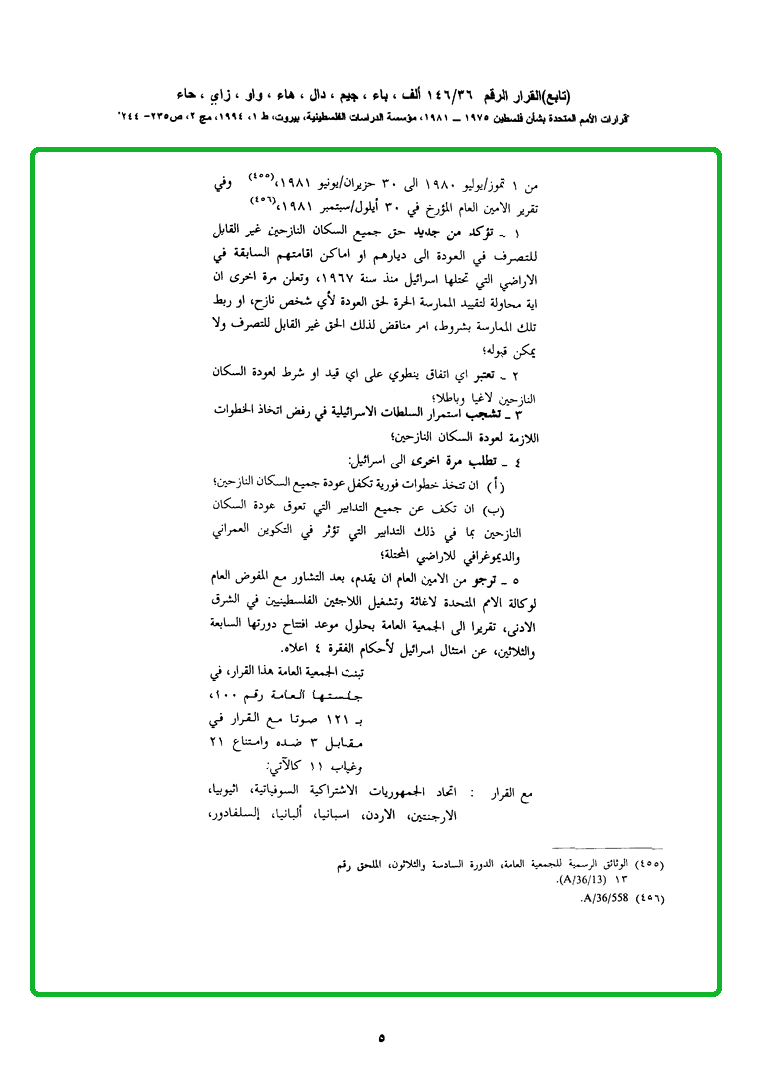 (تابع)القرار الرقم ١٤٦/٣٦ ألف ، باء ، جيم ، دال ، هاء ، واو ، زاي ، حاء
"قرارات الأمم المتحدة بشأن فلسطين ١٩٧٥ – ١٩٨١، مؤسسة الدراسات الفلسطينية، بيروت، ط ١، ١٩٩٤، مج ٢، ص٢٣٥- ٢٤٤"
من ١ تموز/يوليو ١٩٨٠ الى ٣٠ حزيران/يونيو ١٩٨١،(٤٥٥) وفي
تقرير الامين العام المؤرخ في ٣٠ أيلول/سبتمبر ١٩٨١،(٤٥٦)
١ ـ تؤكد من جديد حق جميع السكان النازحين غير القابل
للتصرف في العودة الى ديارهم او اماكن اقامتهم السابقة في
الاراضي التي تحتلها اسرائيل منذ سنة ١٩٦٧، وتعلن مرة اخرى ان
اية محاولة لتقييد الممارسة الحرة لحق العودة لأي شخص نازح، او ربط
تلك الممارسة بشروط، امر مناقض لذلك الحق غير القابل للتصرف ولا
يمكن قبوله؛
٢ ـ تعتبر اي اتفاق ينطوي على اي قيد او شرط لعودة السكان
النازحين لاغيا وباطلا؛
٣ ـ تشجب استمرار السلطات الاسرائيلية في رفض اتخاذ الخطوات
اللازمة لعودة السكان النازحين؛
٤ ـ تطلب مرة اخرى الى اسرائيل:
(أ) ان تتخذ خطوات فورية تكفل عودة جميع السكان النازحين؛
(ب) ان تكف عن جميع التدابير التي تعوق عودة السكان
النازحين بما في ذلك التدابير التي تؤثر في التكوين العمراني
والديموغرافي للاراضي المحتلة؛
٥ ـ ترجو من الامين العام ان يقدم، بعد التشاور مع المفوض العام
لوكالة الامم المتحدة لاغاثة وتشغيل اللاجئين الفلسطينيين في الشرق
الادنى، تقريرا الى الجمعية العامة بحلول موعد افتتاح دورتها السابعة
والثلاثين، عن امتثال اسرائيل لأحكام الفقرة ٤ اعلاه.
تبنت الجمعية العامة هذا القرار، في
جلستها العامة رقم ١٠٠،
بـ ١٢١ صوتا مع القرار في
مقابل ٣ ضده وامتناع ٢١
وغياب ١١ كالآتي:
مع القرار : اتحاد الجمهوريات الاشتراكية السوفياتية، اثيوبيا،
الارجنتين، الاردن، اسبانيا، ألبانيا، إلسلفادور،
(٤٥٥) الوثائق الرسمية للجمعية العامة، الدورة السادسة والثلاثون، الملحق رقم
١٣ (A/36/13).
(٤٥٦) A/36/558.
٥